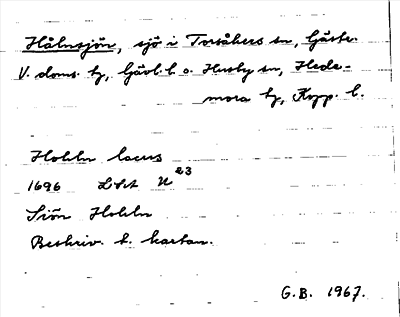 Hålnsjön, sjö i Torsåkers sn, Gästr.
V. doms. hg, Gävl. l. o. Husby sn, Hede-
mora hg, Kopp. l.
Hohln lacus
1696 LSA U 23
Siön Hohln
Beskriv. t. kartan.
G.B. 1967.